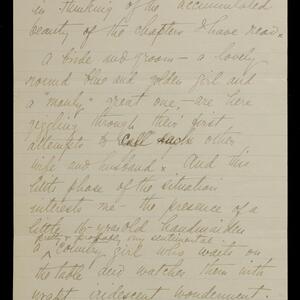 in thinking of the accumulated
beauty of the chapters I have read.
A bride and groom – a lovely
round blue and golden girl and
a "manly" great one, – are here
giggling through their first
attempts to call each other
wife and husband. And this
little phase of the situation
interests me – the presence of a
little 16-year old handmaiden
pretty & probably very sentimental
a country girl who waits on
the table and watches them with
wrapt iridescent wonderment.